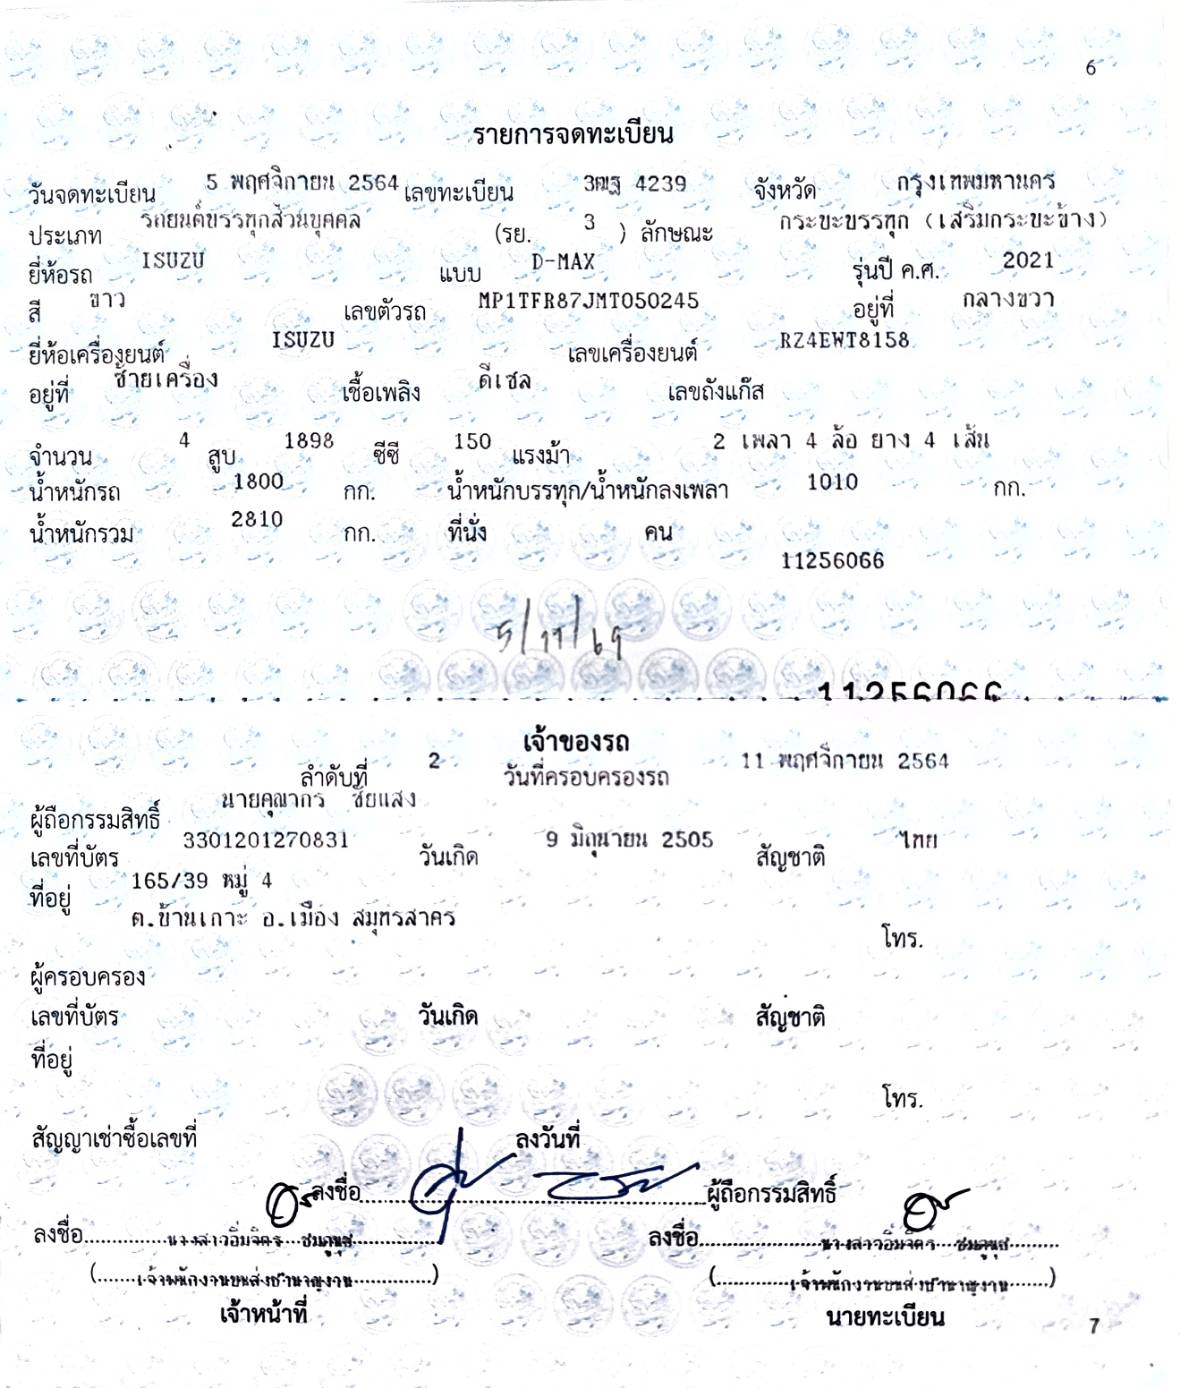 6
รายการจดทะเบียน
วันจดทะเบียน 5 พฤศจิกายน 2564 เลขทะเบียน 3ฒฐ 4239 จังหวัด กรุงเทพมหานคร
ประเภท รถยนต์บรรทุกส่วนบุคคล (รย. 3 ) ลักษณะ กระบะบรรทุก (เสริมกระบะข้าง)
ยี่ห้อรถ ISUZU แบบ D-MAX รุ่นปี ค.ศ. 2021
สี ขาว เลขตัวรถ MP1TFR87JMT050245 อยู่ที่ กลางขวา
ยี่ห้อเครื่องยนต์ ISUZU เลขเครื่องยนต์ RZ4EWT8158
อยู่ที่ ซ้ายเครื่อง เชื้อเพลิง ดีเซล เลขถังแก๊ส
จำนวน 4 สูบ 1898 ซีซี 150 แรงม้า 2 เพลา 4 ล้อ ยาง 4 เส้น
น้ำหนักรถ 1800 กก. น้ำหนักบรรทุก/น้ำหนักลงเพลา 1010 กก.
น้ำหนักรวม 2810 กก. ที่นั่ง คน
11256066
5/11/69
11256066
เจ้าของรถ
ลำดับที่ 2 วันที่ครอบครองรถ 11 พฤศจิกายน 2564
ผู้ถือกรรมสิทธิ์ นายคุณากร ชัยแสง
เลขที่บัตร 3301201270831 วันเกิด 9 มิถุนายน 2505 สัญชาติ ไทย
ที่อยู่ 165/39 หมู่ 4
ต.บ้านเกาะ อ.เมือง สมุทรสาคร
โทร.
ผู้ครอบครอง
เลขที่บัตร วันเกิด สัญชาติ
ที่อยู่
โทร.
สัญญาเช่าซื้อเลขที่ ลงวันที่
ลงชื่อ ผู้ถือกรรมสิทธิ์
ลงชื่อ นางสาวอิ่มจิตร ลงชื่อ นางสาวอิ่มจิตร
(เจ้าพนักงานขนส่งชำนาญงาน) (เจ้าพนักงานขนส่งชำนาญงาน)
เจ้าหน้าที่ นายทะเบียน
7